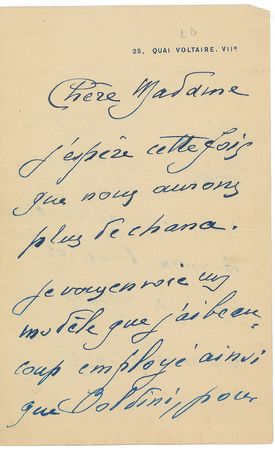 25, QUAI VOLTAIRE. VIIe
Chère Madame
j'espère cette fois
que nous aurons
plus de chance.
je vous envoie un
modèle que j'ai beau-
coup employé ainsi
que Boldini, pour